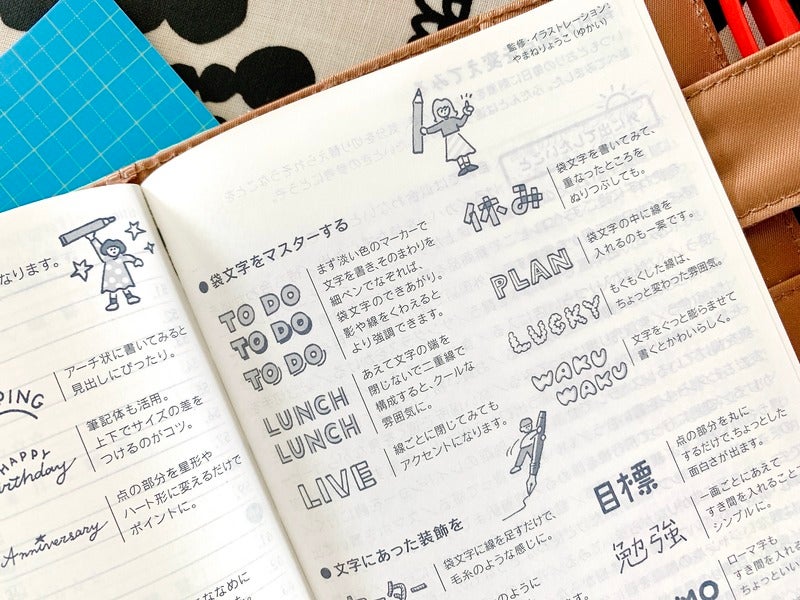 なります。
アーチ状に書いてみると
見出しにぴったり。
PING
筆記体も活用。
上下でサイズの差を
つけるのがコツ。
HAPPY
irthday
点の部分を星形や
ハート形に変えるだけで
ポイントに。
Anniversary
ななめに
監修・イラストレーション:
やまねりょうこ(ゆかい)
●袋文字をマスターする
TO DO
TO DO
TO DO
まず淡い色のマーカーで
文字を書き、そのまわりを
細ペンでなぞれば、
袋文字のできあがり。
影や線をくわえると
より強調できます。
LUNCH
LUNCH
あえて文字の端を
閉じないで二重線で
構成すると、クールな
雰囲気に。
LIVE
線ごとに閉じてみても
アクセントになります。
休み
袋文字を書いてみて、
重なったところを
ぬりつぶしても。
PLAN
袋文字の中に線を
入れるのも一案です。
LUCKY
もくもくした線は、
ちょっと変わった雰囲気。
WAKU
WAKU
文字をぐっと膨らませて
書くとかわいらしく。
●文字にあった装飾を
袋文字に線を足すだけで、
毛糸のような感じに。
のように
目標
点の部分を丸に
するだけで、ちょっとした
面白さが出ます。
勉強
一画ごとにあえて
すき間を入れること
シンプルに。
MO
ローマ字も
すき間を入れる
ちょっといい